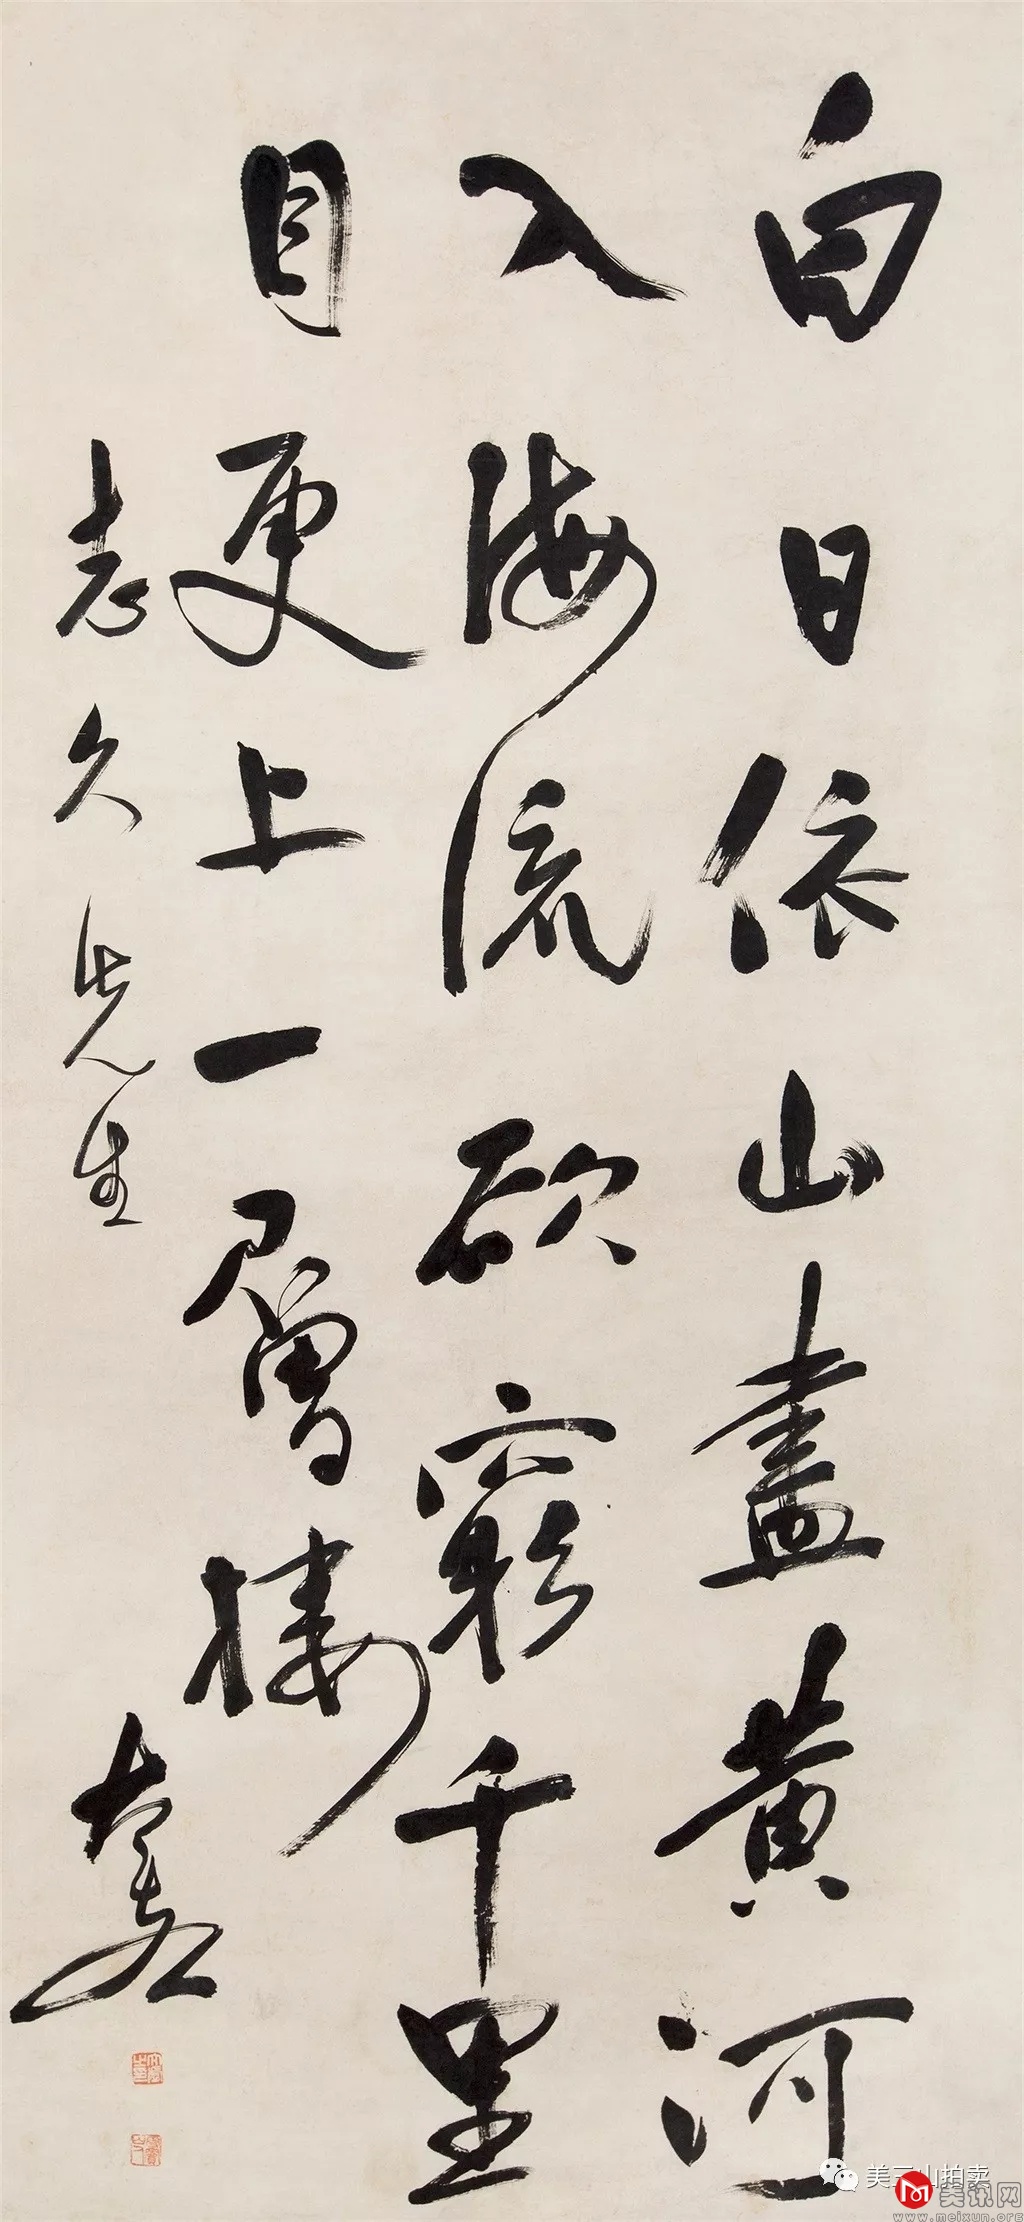 白日依山盡黄河
入海流欲窮千里
目更上一層樓
志久先生
美三山拍卖
美讯网
www.meixun.org